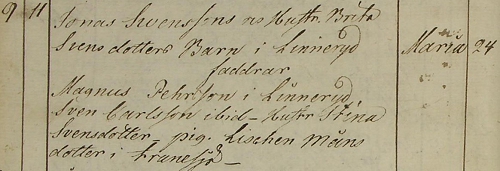 9 11 Jonas Swenssons os Hustr. Brita
Svens dotters Barn i Linneryd Maria 24
faddrar
Magnus Pehrsson i Linneryd
Sven Carlsson ibid - Hustr Stina
Svensdotter - pig. Lischen Måns
dotter i Franesjö -